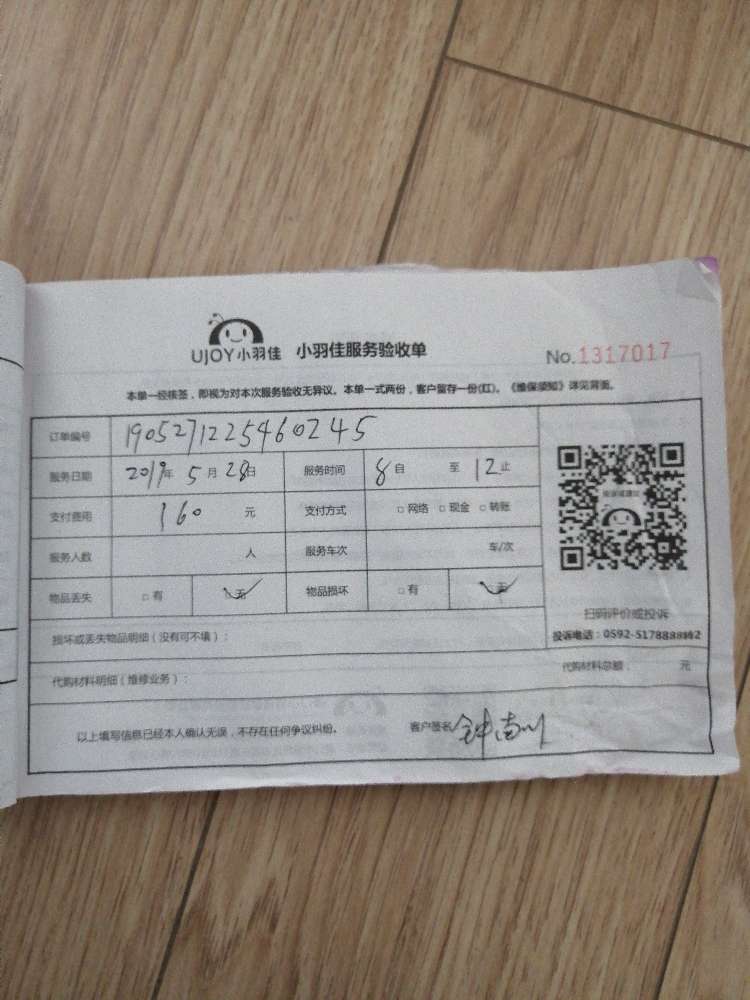 UJOY小羽佳 小羽佳服务验收单 No.1317017
本单一经核签，即视为对本次服务验收无异议。本单一式两份，客户留存一份(红)。《维保须知》详见背面。
订单编号 190527122546024 5
服务日期 2019年 5月 28日 服务时间 8自 至 12止
支付费用 160 元 支付方式 □网络 □现金 □转账
服务人数 人 服务车次 车/次
物品丢失 □有 □无 物品损坏 □有 □无
扫码评价或投诉
投诉电话：0592-5178888
损坏或丢失物品明细（没有可不填）：
代购材料明细（维修业务）： 代购材料总额： 元
以上填写信息已经本人确认无误，不存在任何争议纠纷。 客户签名 钟南